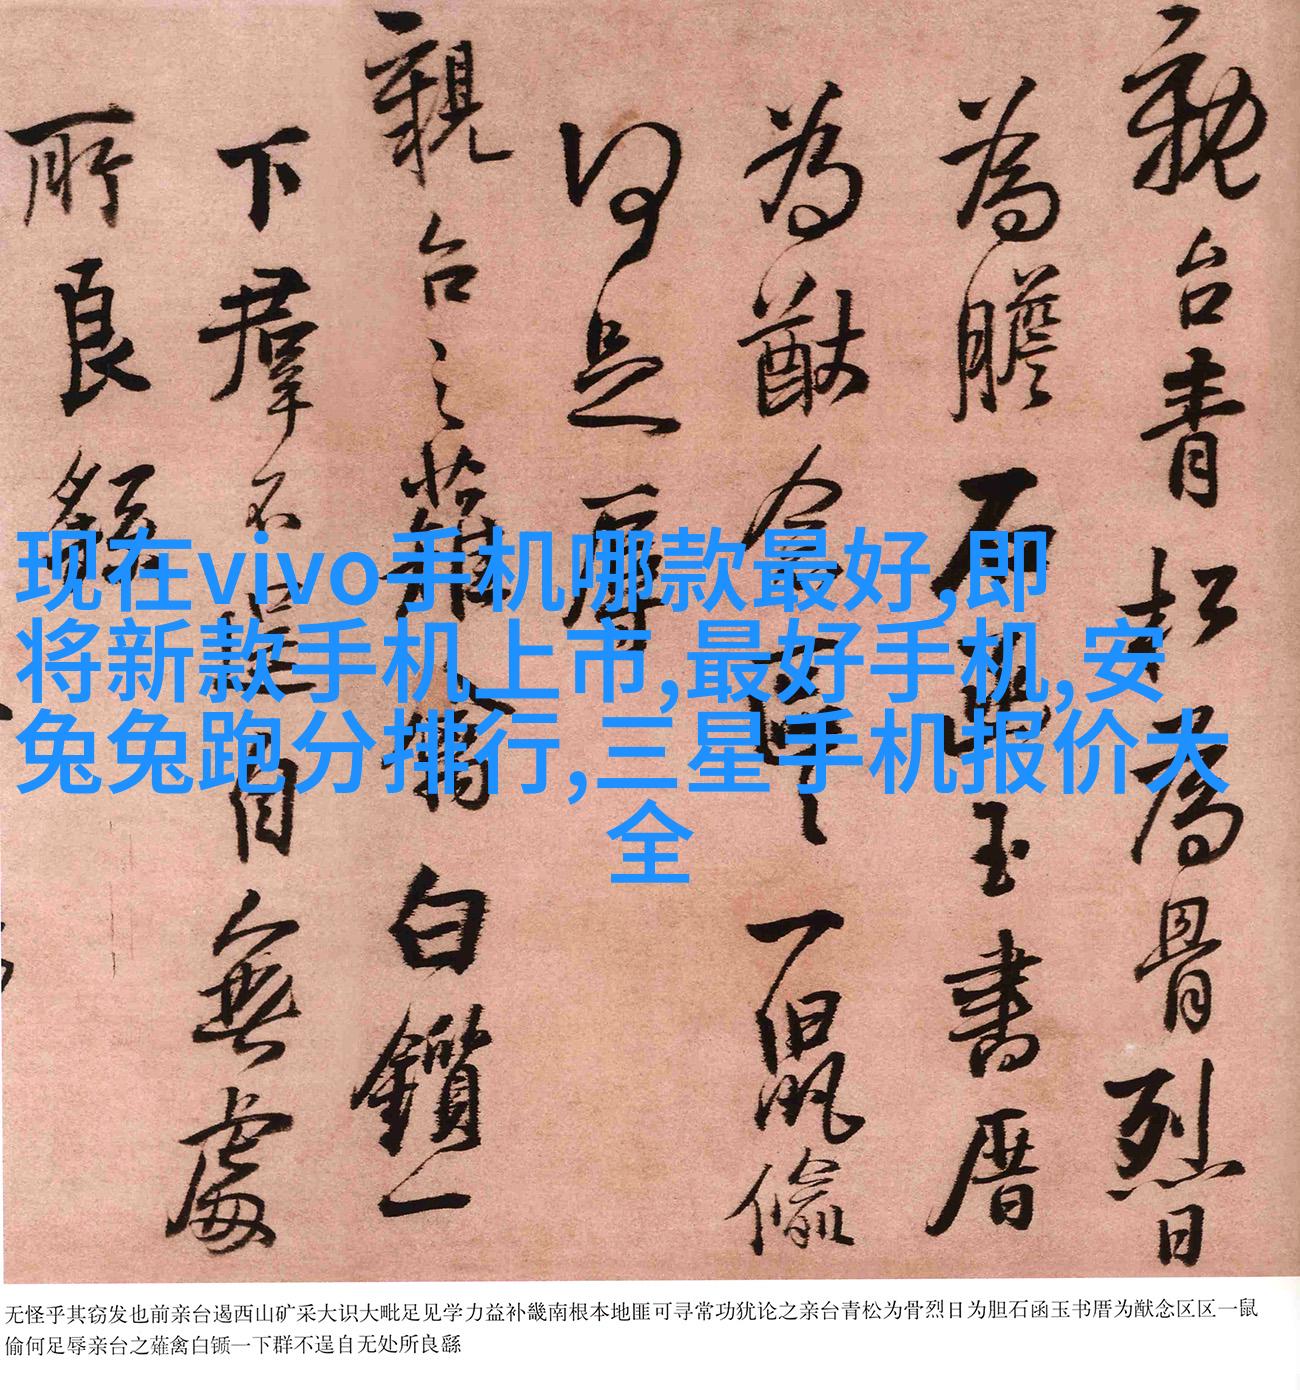 親台青松為骨烈日
為膽石函玉書厝
為猷念區區一鼠偷
何足辱
親台之薙禽白鑕一
下羣不逞自無處
所良繇
现在vivo手机哪款最好,即
将新款手机上市,最好手机,安
兔兔跑分排行,三星手机报价大
全
无怪乎其窃发也前亲台遏西山矿采大识大毗足见学力益补畿南根本地匪可寻常功犹论之亲台青松为骨烈日为胆石函玉书厝为猷念区区一鼠
偷何足辱亲台之薙禽白锧一下群不逞自无处所良繇